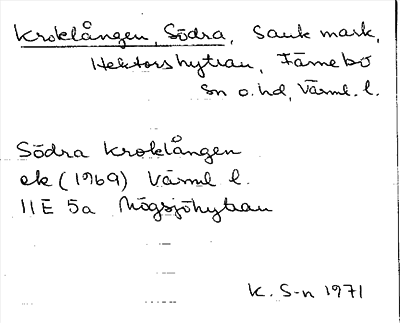 Kroklången, Södra, Sank mark,
Hektorshyttan, Färnebo
sn o. hd, Värml. l.
Södra Kroklången
ek (1969) Värml l.
11E 5a Högsjöhyttan
K. S-n 1971